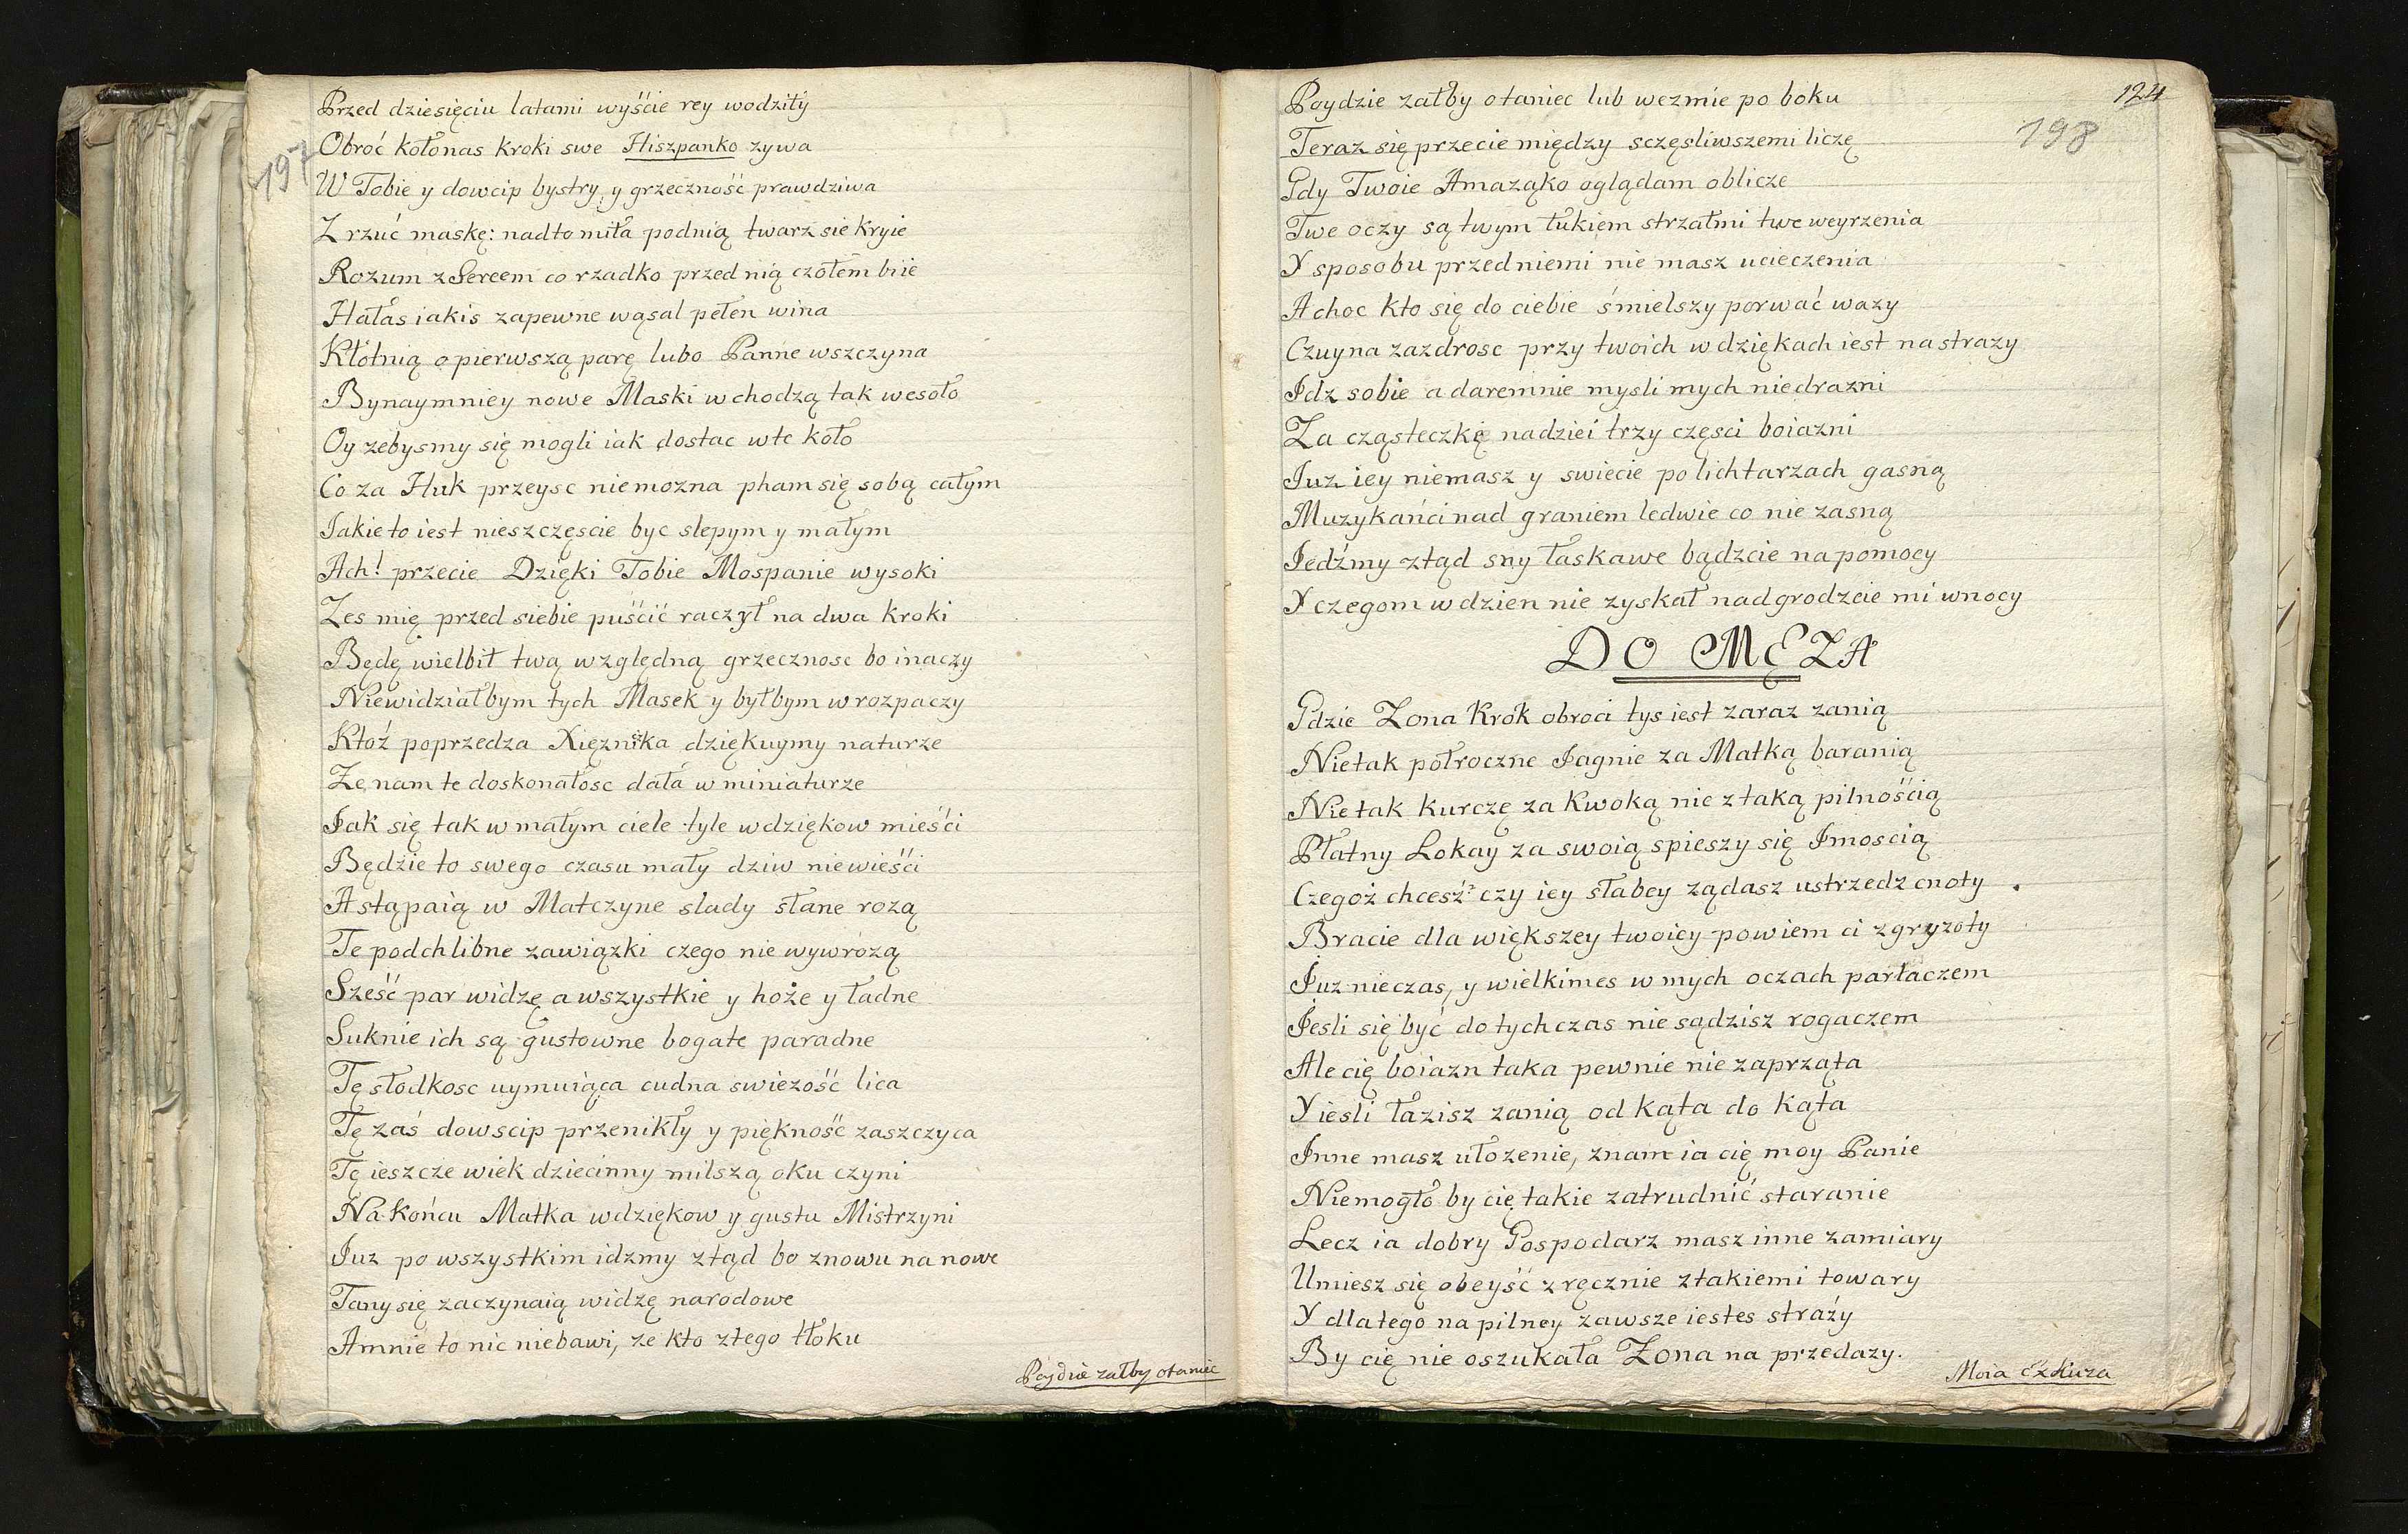 197
Przed dziesięciu latami wyście rey wodziły
Obroć kołonas kroki swe Hiszpanko zywa
W Tobie y dowcip bystry y grzeczność prawdziwa
Zrzuć maskę: nadto miła podnią twarz sie kryie
Rozum z Sercem co rzadko przed nią czołem biie
Hałas iakis zapewne wąsal pełen wina
Kłótnią o pierwszą parę lubo Panne wszczyna
Bynaymniey nowe Maski wchodzą tak wesoło
Oy zebysmy się mogli iak dostac wte koło
Co za Huk przeysc niemozna pham się sobą całym
Jakie to iest nieszczęscie byc slepym y małym
Ach! przecie Dzięki Tobie Mospanie wysoki
Zes mię przed siebie puśćić raczył na dwa kroki
Będę wielbił twą względną grzecznosc bo inaczy
Niewidziałbym tych Masek y byłbym w rozpaczy
Ktoż poprzedza Xięzniczka dziękuymy naturze
Ze nam te doskonałosc dała w miniaturze
Jak się tak w małym ciele tyle wdziękow mieśći
Będzie to swego czasu mały dziw niewieśći
A stąpaią w Matczyne slady słane rozą
Te podchlibne zawiązki czego nie wywrózą
Sześć par widzę a wszystkie y hoże y ładne
Suknie ich są gustowne bogate paradne
Tę słodkosc uymuiąca cudna swiezość lica
Tę zaś dowscip przenikły y piękność zaszczyca
Tę ieszcze wiek dziecinny milszą oku czyni
Na końcu Matka wdziękow y gustu Mistrzyni
Juz po wszystkim idzmy ztąd bo znowu na nowe
Tany się zaczynaią widzę narodowe
A mnie to nic niebawi, ze kto ztego tłoku
Poydzie załby otaniec
124
198
Poydzie załby otaniec lub wezmie po boku
Teraz się przecie między sczęsliwszemi liczę
Gdy Twoie Amaząko oglądam oblicze
Twe oczy są twym łukiem strzałmi twe weyrzenia
Y sposobu przedniemi nie masz ucieczenia
A choc kto się do ciebie śmielszy porwać wazy
Czuyna zazdrosc przy twoich wdziękach iest na strazy
Jdz sobie a daremnie mysli mych niedrazni
Za cząsteczkę nadziei trzy częsci boiazni
Juz iey niemasz y swiecie po lichtarzach gasną
Muzykańci nad graniem ledwie co nie zasną
Jedźmy ztąd sny łaskawe bądzcie na pomocy
Y czegom w dzien nie zyskał nadgrodzcie mi wnocy
DO MĘZA
Gdzie Zona krok obroci tys iest zaraz zanią
Nie tak półroczne Jagnie za Matką baranią
Nie tak kurczę za kwoką nie z taką pilnośćią
Płatny Lokay za swoią spieszy się Jmoscią
Czegoż chcesz? czy iey słabey ządasz ustrzedz cnoty
Bracie dla większey twoiey powiem ci zgryzoty
Juz nieczas, y wielkimes w mych oczach partaczem
Jesli się być do tych czas nie sądzisz rogaczem
Ale cię boiazn taka pewnie nie zaprząta
Y iesli łazisz zanią od kąta do kąta
Jnne masz ułozenie, znam ia cię moy Panie
Niemogło by cię takie zatrudnić staranie
Lecz ia dobry Gospodarz masz inne zamiary
Umiesz się obeyść zręcznie z takiemi towary
Y dla tego na pilney zawsze iestes straży
By cię nie oszukała Zona na przedazy.
Moia Exkuza